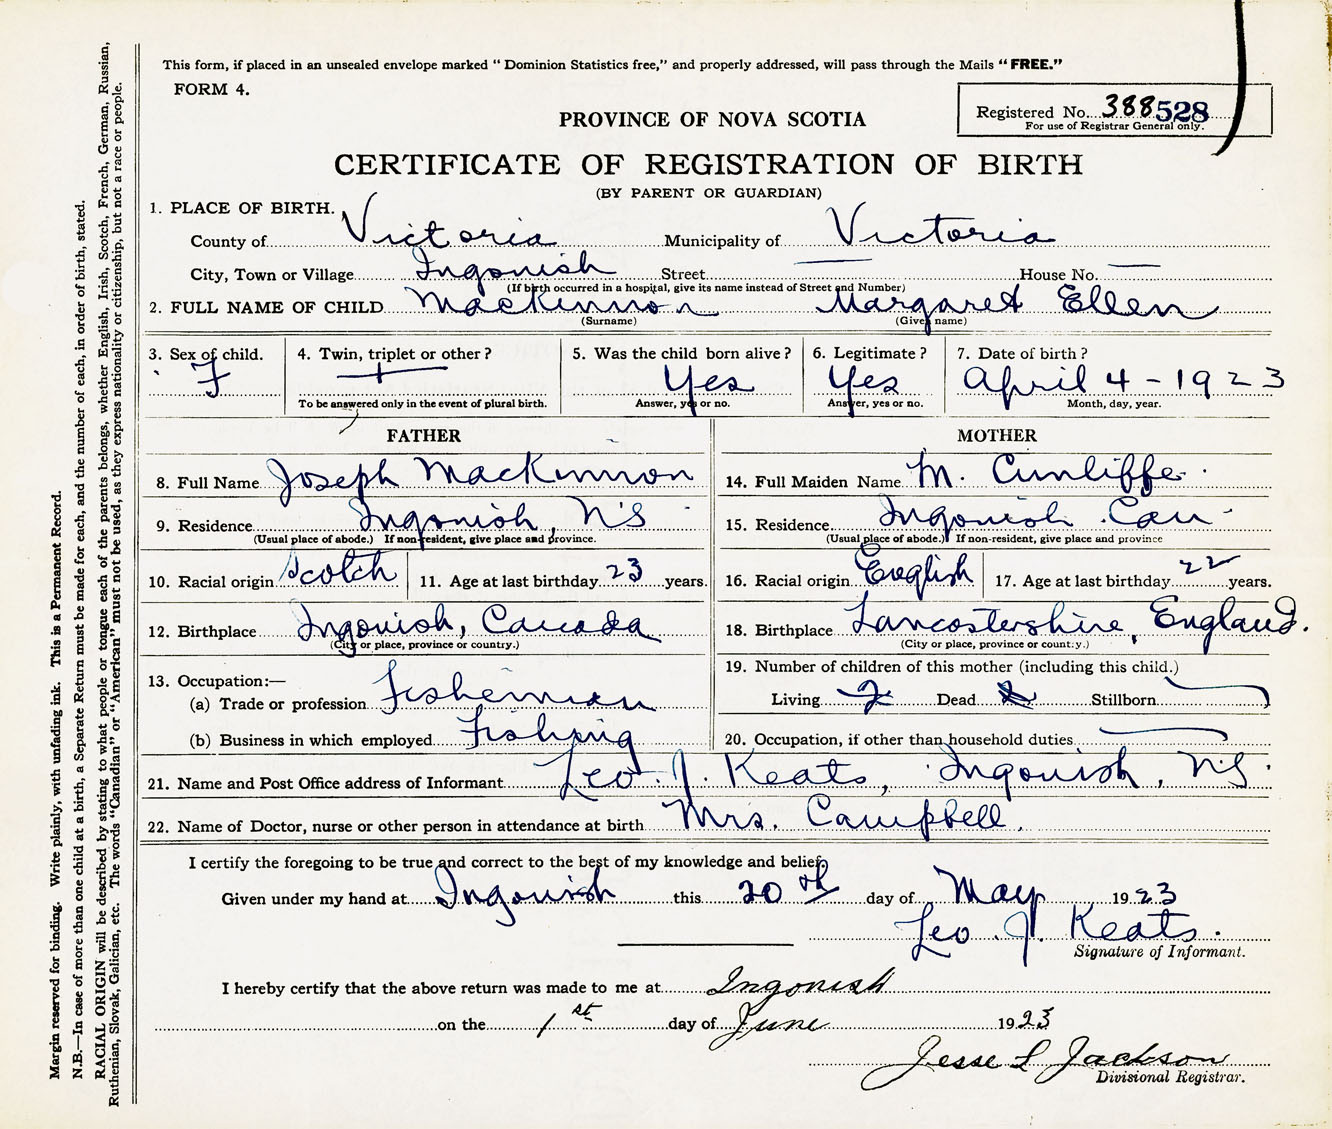 This form, if placed in an unsealed envelope marked "Dominion Statistics free," and properly addressed, will pass through the Mails "FREE."
FORM 4.
Registered No. 388528
For use of Registrar General only.
PROVINCE OF NOVA SCOTIA
CERTIFICATE OF REGISTRATION OF BIRTH
(BY PARENT OR GUARDIAN)
1. PLACE OF BIRTH.
County of Victoria Municipality of Victoria
City, Town or Village Ingonish Street — House No. —
(If birth occurred in a hospital, give its name instead of Street and Number)
2. FULL NAME OF CHILD MacKinnon Margaret Ellen
(Surname) (Given name)
3. Sex of child. 4. Twin, triplet or other? 5. Was the child born alive? 6. Legitimate? 7. Date of birth?
F Yes Yes April 4 - 1923
To be answered only in the event of plural birth. Answer, yes or no. Answer, yes or no. Month, day, year.
FATHER MOTHER
8. Full Name Joseph MacKinnon 14. Full Maiden Name M. Cunliffe
9. Residence Ingonish, N.S 15. Residence Ingonish Can
(Usual place of abode.) If non-resident, give place and province. (Usual place of abode.) If non-resident, give place and province
10. Racial origin Scotch 11. Age at last birthday 23 years. 16. Racial origin English 17. Age at last birthday 22 years.
12. Birthplace Ingonish, Canada 18. Birthplace Lancostershire, England.
(City or place, province or country.) (City or place, province or country.)
13. Occupation:— 19. Number of children of this mother (including this child.)
(a) Trade or profession Fisherman Living 2 Dead Stillborn
(b) Business in which employed Fishing 20. Occupation, if other than household duties
21. Name and Post Office address of Informant Leo. J. Keats, Ingonish, N.S.
22. Name of Doctor, nurse or other person in attendance at birth Mrs. Campbell.
I certify the foregoing to be true and correct to the best of my knowledge and belief.
Given under my hand at Ingonish this 20th day of May 1923
Leo. J. Keats.
Signature of Informant.
I hereby certify that the above return was made to me at Ingonish
on the 1st day of June 1923
Jesse L Jackson
Divisional Registrar.
Margin reserved for binding. Write plainly, with unfading ink. This is a Permanent Record.
N.B.—In case of more than one child at a birth, a Separate Return must be made for each, and the number of each, in order of birth, stated.
RACIAL ORIGIN will be described by stating to what people or tongue each of the parents belongs, whether English, Irish, Scotch, French, German, Russian,
Ruthenian, Slovak, Galician, etc. The words "Canadian" or "American" must not be used, as they express nationality or citizenship, but not a race or people.